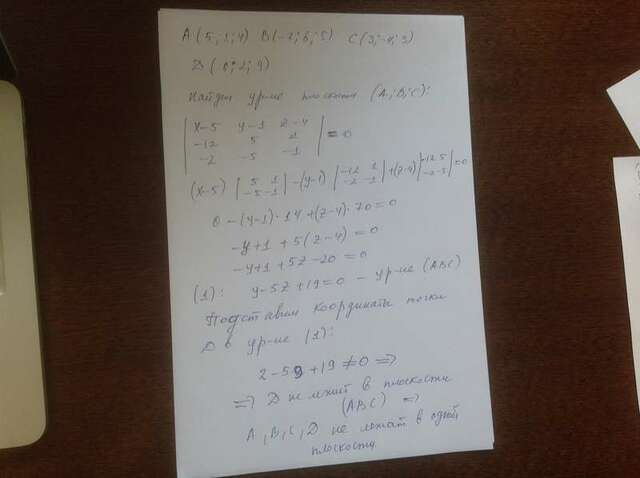 A (5; 1; 4) B(-7; 6; 5) C (3; -4; 3)
D (-6; 2; 9)
Найдем ур-ие плоскости (A; B; C):
| x-5 y-1 z-4 |
| -12 5 1 | = 0
| -2 -5 -1 |
(x-5) | 5 1 | - (y-1) | -12 1 | + (z-4) | -12 5 | = 0
| -5 -1 | | -2 -1 | | -2 -5 |
0 - (y-1) · 14 + (z-4) · 70 = 0
-y+1 + 5(z-4) = 0
-y+1 + 5z-20 = 0
(1): y-5z+19=0 - ур-ие (ABC)
Подставим координаты точки
D в ур-ие (1):
2-5·9+19 ≠ 0 =>
=> D не лежит в плоскости
(ABC) =>
A, B, C, D не лежат в одной
плоскости